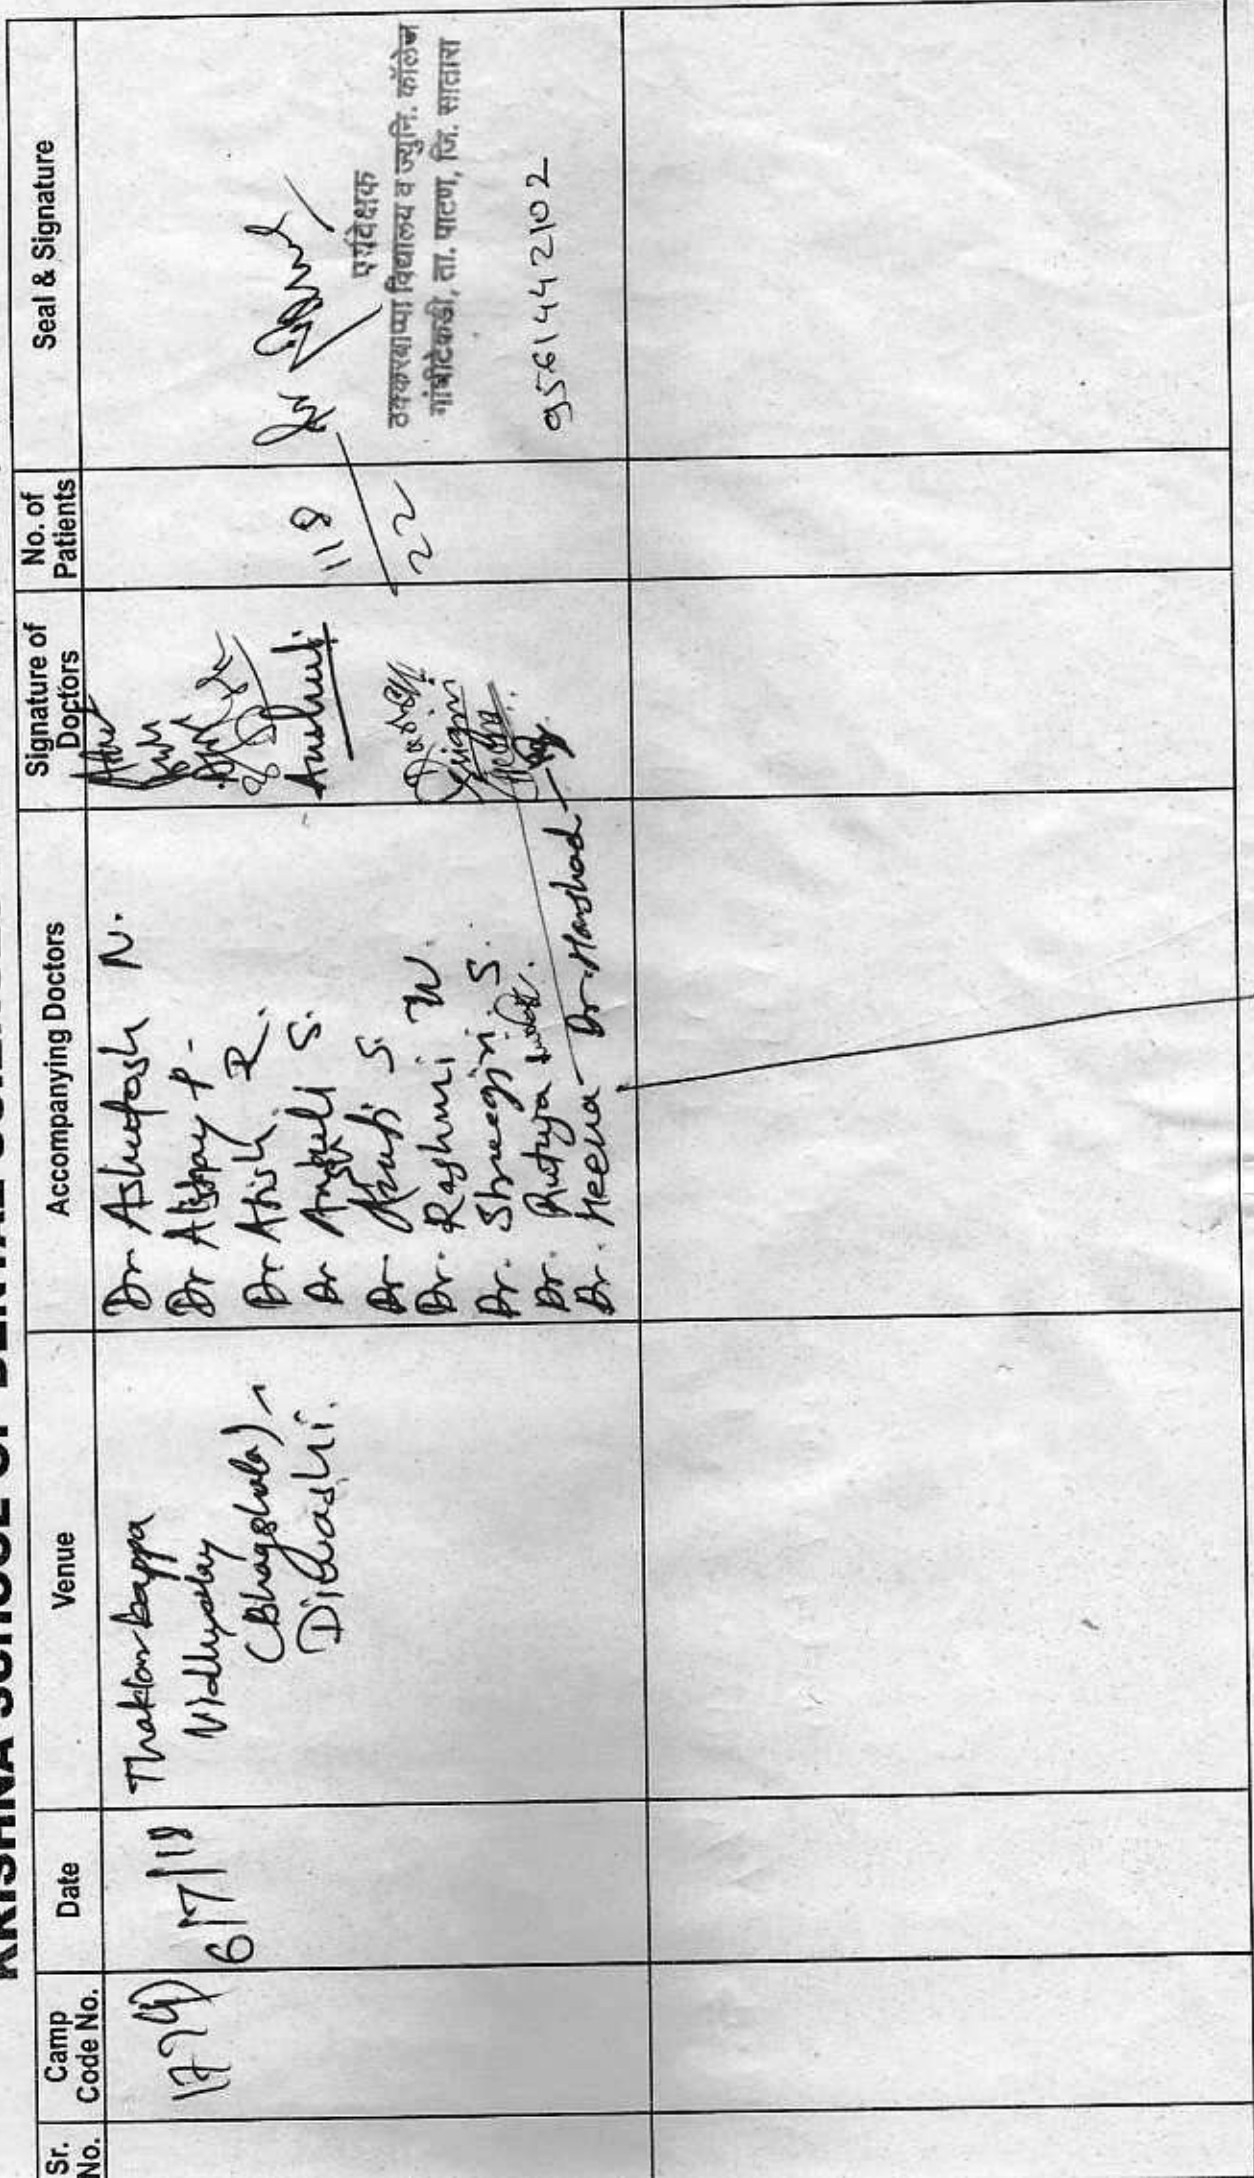 KRISHNA SCHOOL OF DENTAL
Sr. No.
Camp Code No.
Date
Venue
Accompanying Doctors
Signature of Doctors
No. of Patients
Seal & Signature
6/7/18
Thakkar bappa
Vidhyalay
(Bhagshala)
Divashi.
Dr Ashutosh N.
Dr Akshay P-
Dr Atish R.
Dr Anjali S.
Dr. S.
Dr. Rashmi W.
Dr. Shreegiri. S.
Dr. Rutuja
Dr. Heena - Dr. Harshad
118
22
पर्यवेक्षक
ठक्करबाप्पा विद्यालय व ज्युनि. कॉलेज
गांधीटेकडी, ता. पाटण, जि. सातारा
9561442102